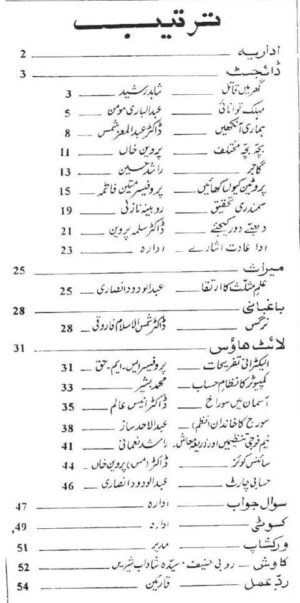 ترتیب
اداریہ 2
ڈائجسٹ 3
گھر میں قاتل شاہد رشید 3
مہلک توانائی عبدالباری مومن 5
ہماری آنکھیں ڈاکٹر عبدالمعز شمس 8
بچّہ بچّہ مختلف پروین خاں 11
گاجر راشد حسین 13
پروٹین کیوں کھائیں پروفیسر متین فاطمہ 15
سمندری تحقیق روبینہ نازلی 19
دھبّے دور کیجئے ڈاکٹر سلمہ پروین 21
اشارے ادارہ 23
میراث 25
علم مثلث کا ارتقا عبدالودود انصاری 25
باغبانی 28
نرگس ڈاکٹر شمس الاسلام فاروقی 28
لائٹ ہاؤس 31
الیکٹرانی تفریحات پروفیسر ایس۔ایم۔حق 31
کمپیوٹر کا نظام حساب محمد بشیر 33
آسمان میں سوراخ ڈاکٹر انیس عالم 35
سورج کا خاندان (نظم) عبدالاحد ساز 38
نیم فوجی تنظیمیں اور ذریعۂ معاش۔ راشد نعمانی 41
سائنس کوئز ڈاکٹر (مس) پروین خاں 44
حسابی چارٹ عبدالودود انصاری 46
سوال جواب ادارہ 47
کسوٹی ادارہ 49
ورکشاپ مدیر 51
کاوش روبی حنیف۔ سیّدہ شاداب شیریں 52
ردِّ عمل قارئین 54